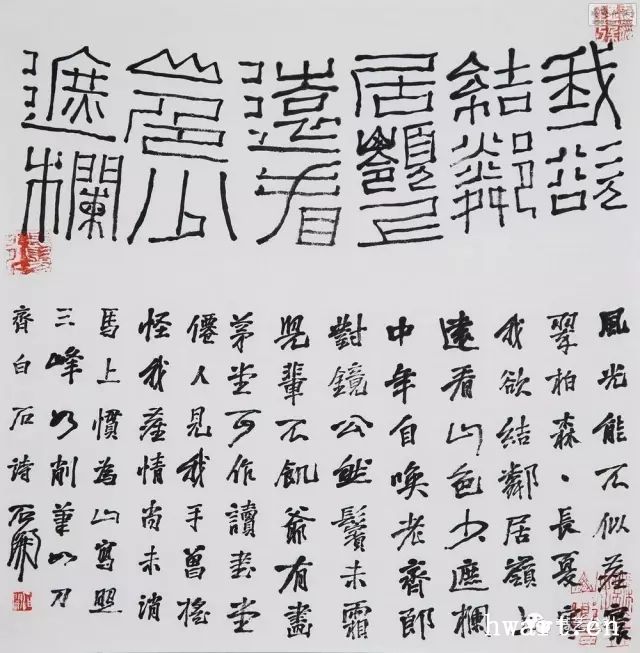 我欲
結鄰
居嶺上
遠看
山色少
遮欄
風光能不似塵寰
翠柏森〻長夏寒
我欲結鄰居嶺上
遠看山色少遮欄
中年自喚老齊郎
對鏡公然鬢未霜
兒輩不飢爺有畫
茅堂可作讀書堂
僊人見我手曾搖
怪我塵情尚未消
馬上慣為山寫照
三峰如削筆如刀
齊白石詩 石開
hwart.cn